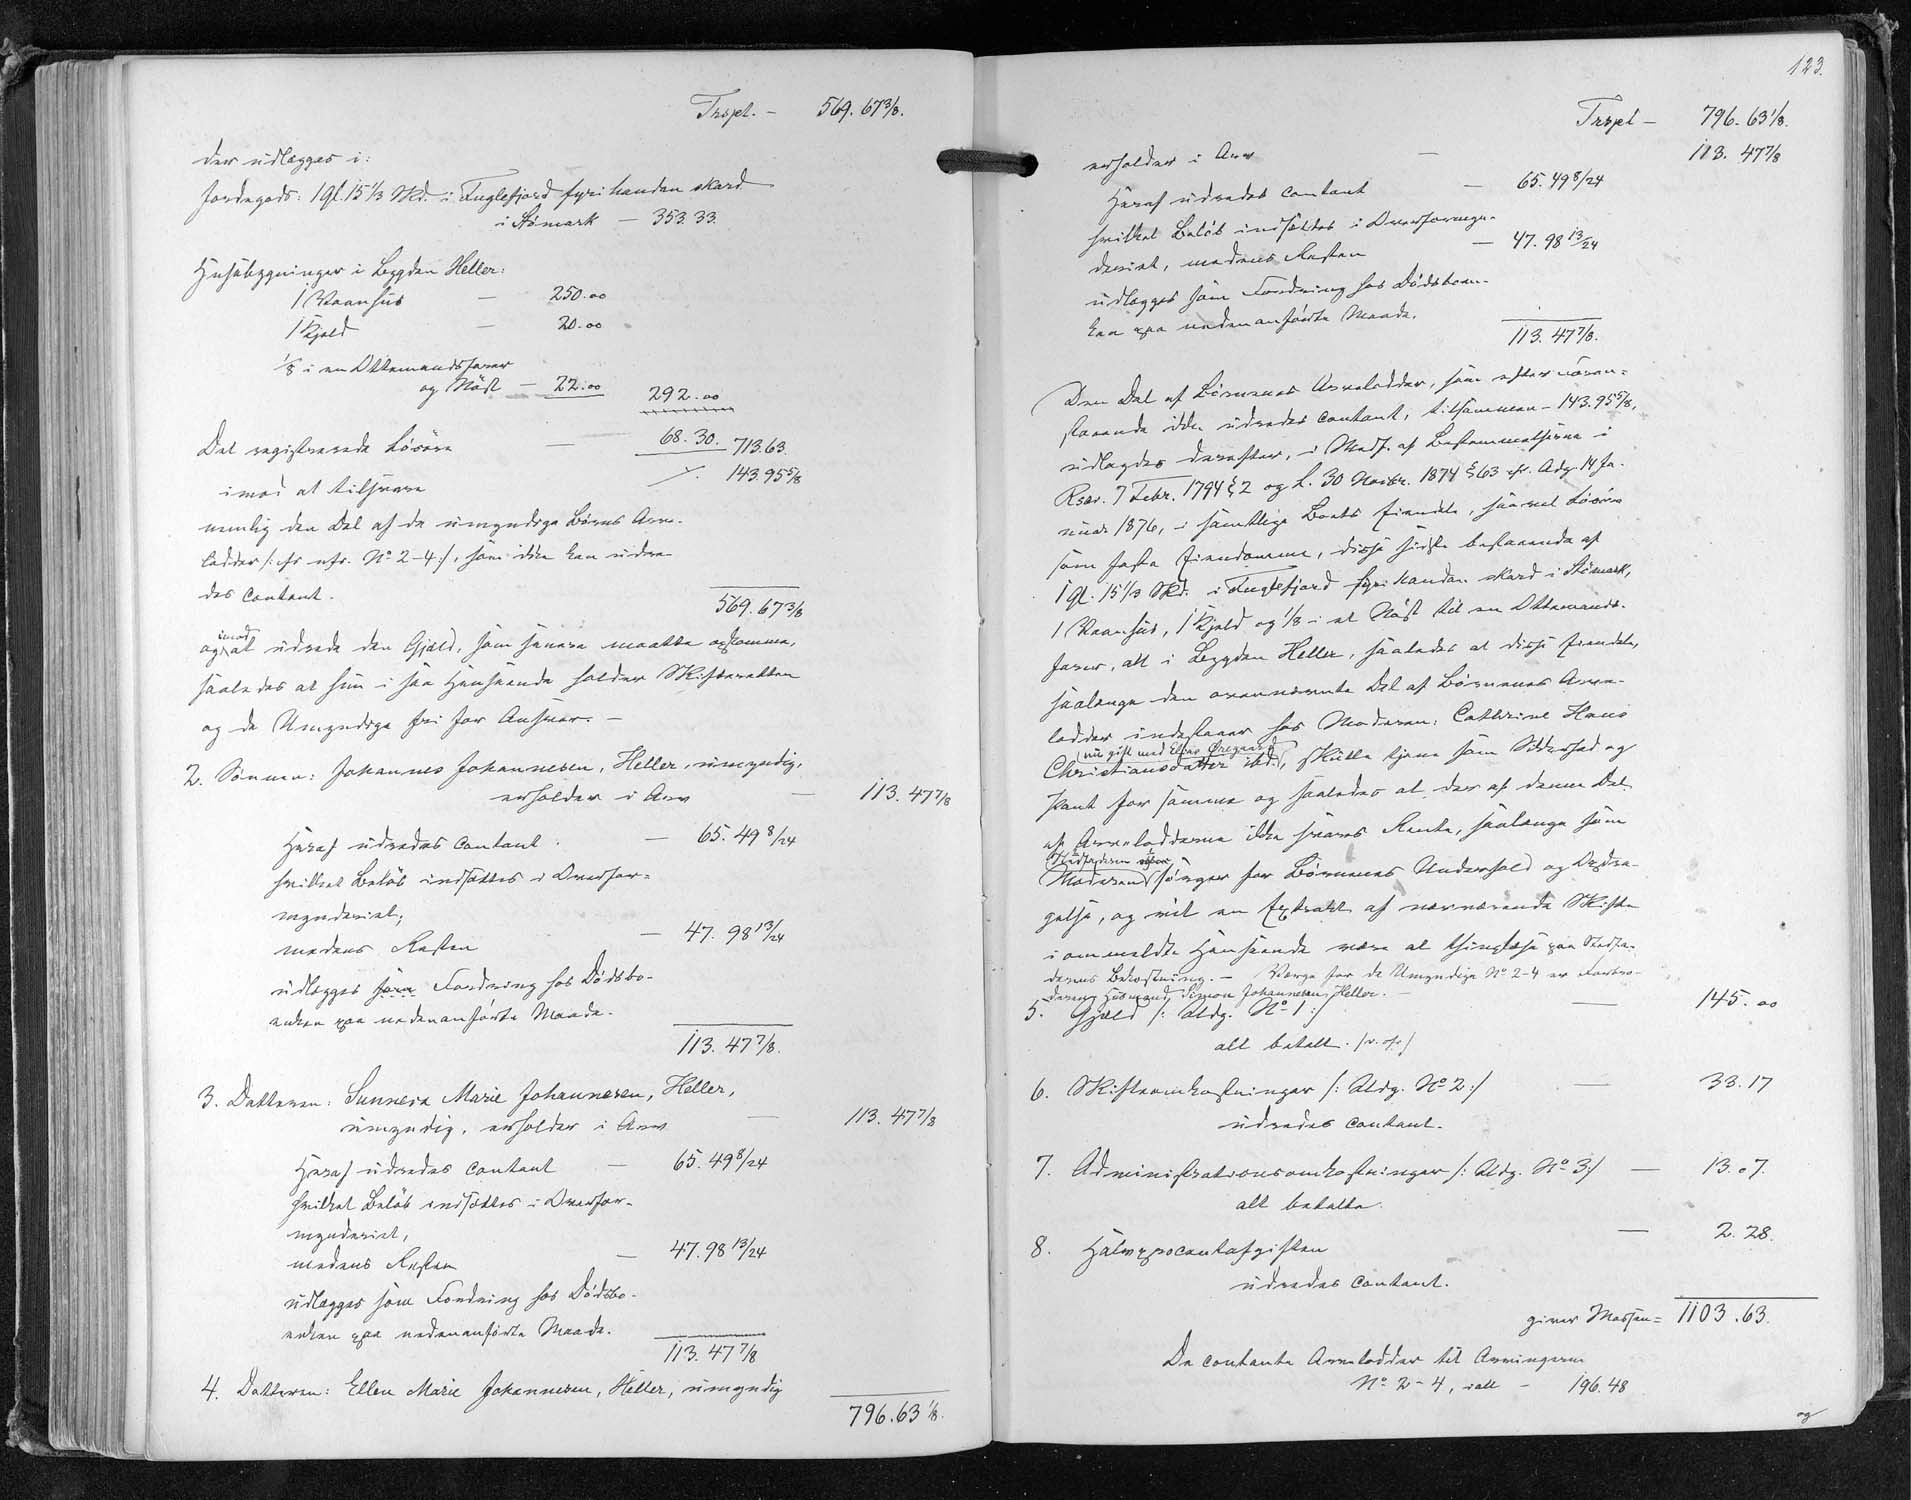 Trspt. – 569. 67 3/8.
der udlægges i:
Jordegods: 1 Gl. 15 1/3 Skd. i Fuglefjord fyri handan skard
i Stómark – 353.33.
Husabygninger i Bygden Heller:
1 Vaanhus – 250.00
1 Kjeld – 20.00
1/8 i en Ottemandsfarer
og Nøst – 22.00 292.00
Det registrerede Løsøre – 68.30. 713.63.
imod at tilsvare ./. 143.95 5/8
nemlig den Del af de umyndige Børns Arve-
lodder /: cfr. nfr. No 2-4 :/, som ikke kan udre-
des contant.
569.67 3/8
og imod at udrede den Gjæld, som senere maatte opkomme,
saaledes at hun i saa Henseende holder Skifteretten
og de Umyndige fri for Ansvar. –
2. Sønnen: Johannes Johannesen, Heller, umyndig,
erholder i Arv – 113.47 7/8
Heraf udredes contant – 65.49 8/24
hvilket Beløb indsættes i Overfor-
mynderiet,
medens Resten – 47.98 13/24
udlægges som Fordring hos Dødsbo-
enken paa nedenanførte Maade.
113.47 7/8.
3. Datteren: Sunneva Marie Johannesen, Heller,
umyndig, erholder i Arv – 113.47 7/8
Heraf udredes contant – 65.49 8/24
hvilket Beløb indsættes i Overfor-
mynderiet,
medens Resten – 47.98 13/24
udlægges som Fordring hos Dødsbo-
enken paa nedenanførte Maade.
113.47 7/8
4. Datteren: Ellen Marie Johannesen, Heller, umyndig
796.63 1/8.
123.
Trspt – 796.63 1/8.
erholder i Arv – 113.47 7/8
Heraf udredes contant – 65.49 8/24
hvilket Beløb indsættes i Overformyn-
deriet, medens Resten – 47.98 13/24
udlægges som Fordring hos Dødsboen-
ken paa nedenanførte Maade.
113.47 7/8.
Den Del af Børnenes Arvelodder, som efter ovenstaa-
ende ikke udredes contant, tilsammen – 143.95 5/8,
udlægdes derefter, i Medf. af Bestemmelserne i
Rescr. 7 Febr. 1794 § 2 og L. 30 Novbr. 1874 § 63 cfr. Adg. 14 Ja-
nuar 1876, i samtlige Boets Eiendele, saavel Løsøre
som faste Eiendomme, disse sidste bestaaende af
1 Gl. 15 1/3 Skd. i Fuglefjord fyri handan skard i Stómark,
1 Vaanhus, 1 Kjeld og 1/8 i et Nøst til en Ottemands-
farer, alt i Bygden Heller, saaledes at disse Eiendele,
saalænge den ovennævnte Del af Børnenes Arve-
lodder indestaaer hos Moderen: Cathrine Hans
(nu gift med Elias Øregaard)
Christiansdatter ibd., skulle tjene som Sikkerhed og
Pant for samme og saaledes at der af denne Del
af Arvelodderne ikke svares Rente, saalænge som
Stedfaderen
Moderen sørger for Børnenes Underhold og Opdra-
gelse, og vil en Extract af nærværende Skifte
i ommeldte Henseende være at thinglæse paa Stedfa-
derens Bekostning. – Værge for de Umyndige No 2-4 er Farbro-
deren Husmand Simon Johannesen, Heller. –
5. Gjæld /: Udg. No 1 :/ – 145.00
alt betalt.
6. Skifteomkostninger /: Udg. No 2 :/ – 33.17
udredes contant.
7. Administrationsomkostninger /: Udg. No 3 :/ – 13.07.
alt betalte.
8. Halvprocentafgiften – 2.28.
udredes contant.
giver Massen = 1103.63.
De contante Arvelodder til Arvingerne
No 2-4, ialt – 196.48
og